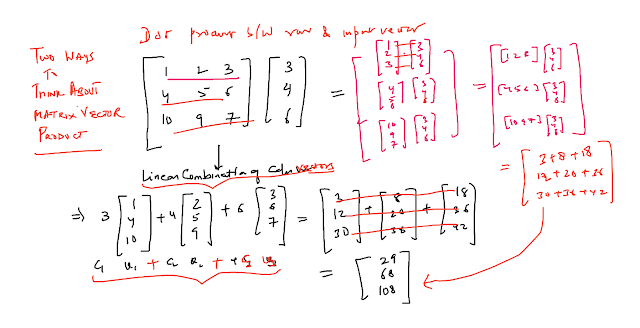 Dot product b/w row & input vector
Two Ways
To
Think About
Matrix Vector
Product
[1 2 3] [3] = [[1 2 3] · [3 4 6]] = [[1 2 3] [3 4 6]]
[4 5 6] [4] [[4 5 6] [3 4 6]] [[4 5 6] [3 4 6]]
[10 9 7] [6] [[10 9 7] [3 4 6]] [[10 9 7] [3 4 6]]
= [3+8+18]
[12+20+36]
[30+36+42]
Linear Combination of Column vectors
⇒ 3 [1 4 10] + 4 [2 5 9] + 6 [3 6 7] = [3 12 30] + [8 20 36] + [18 36 42]
C₁ v₁ + C₂ v₂ + C₃ v₃
= [29]
[68]
[108]